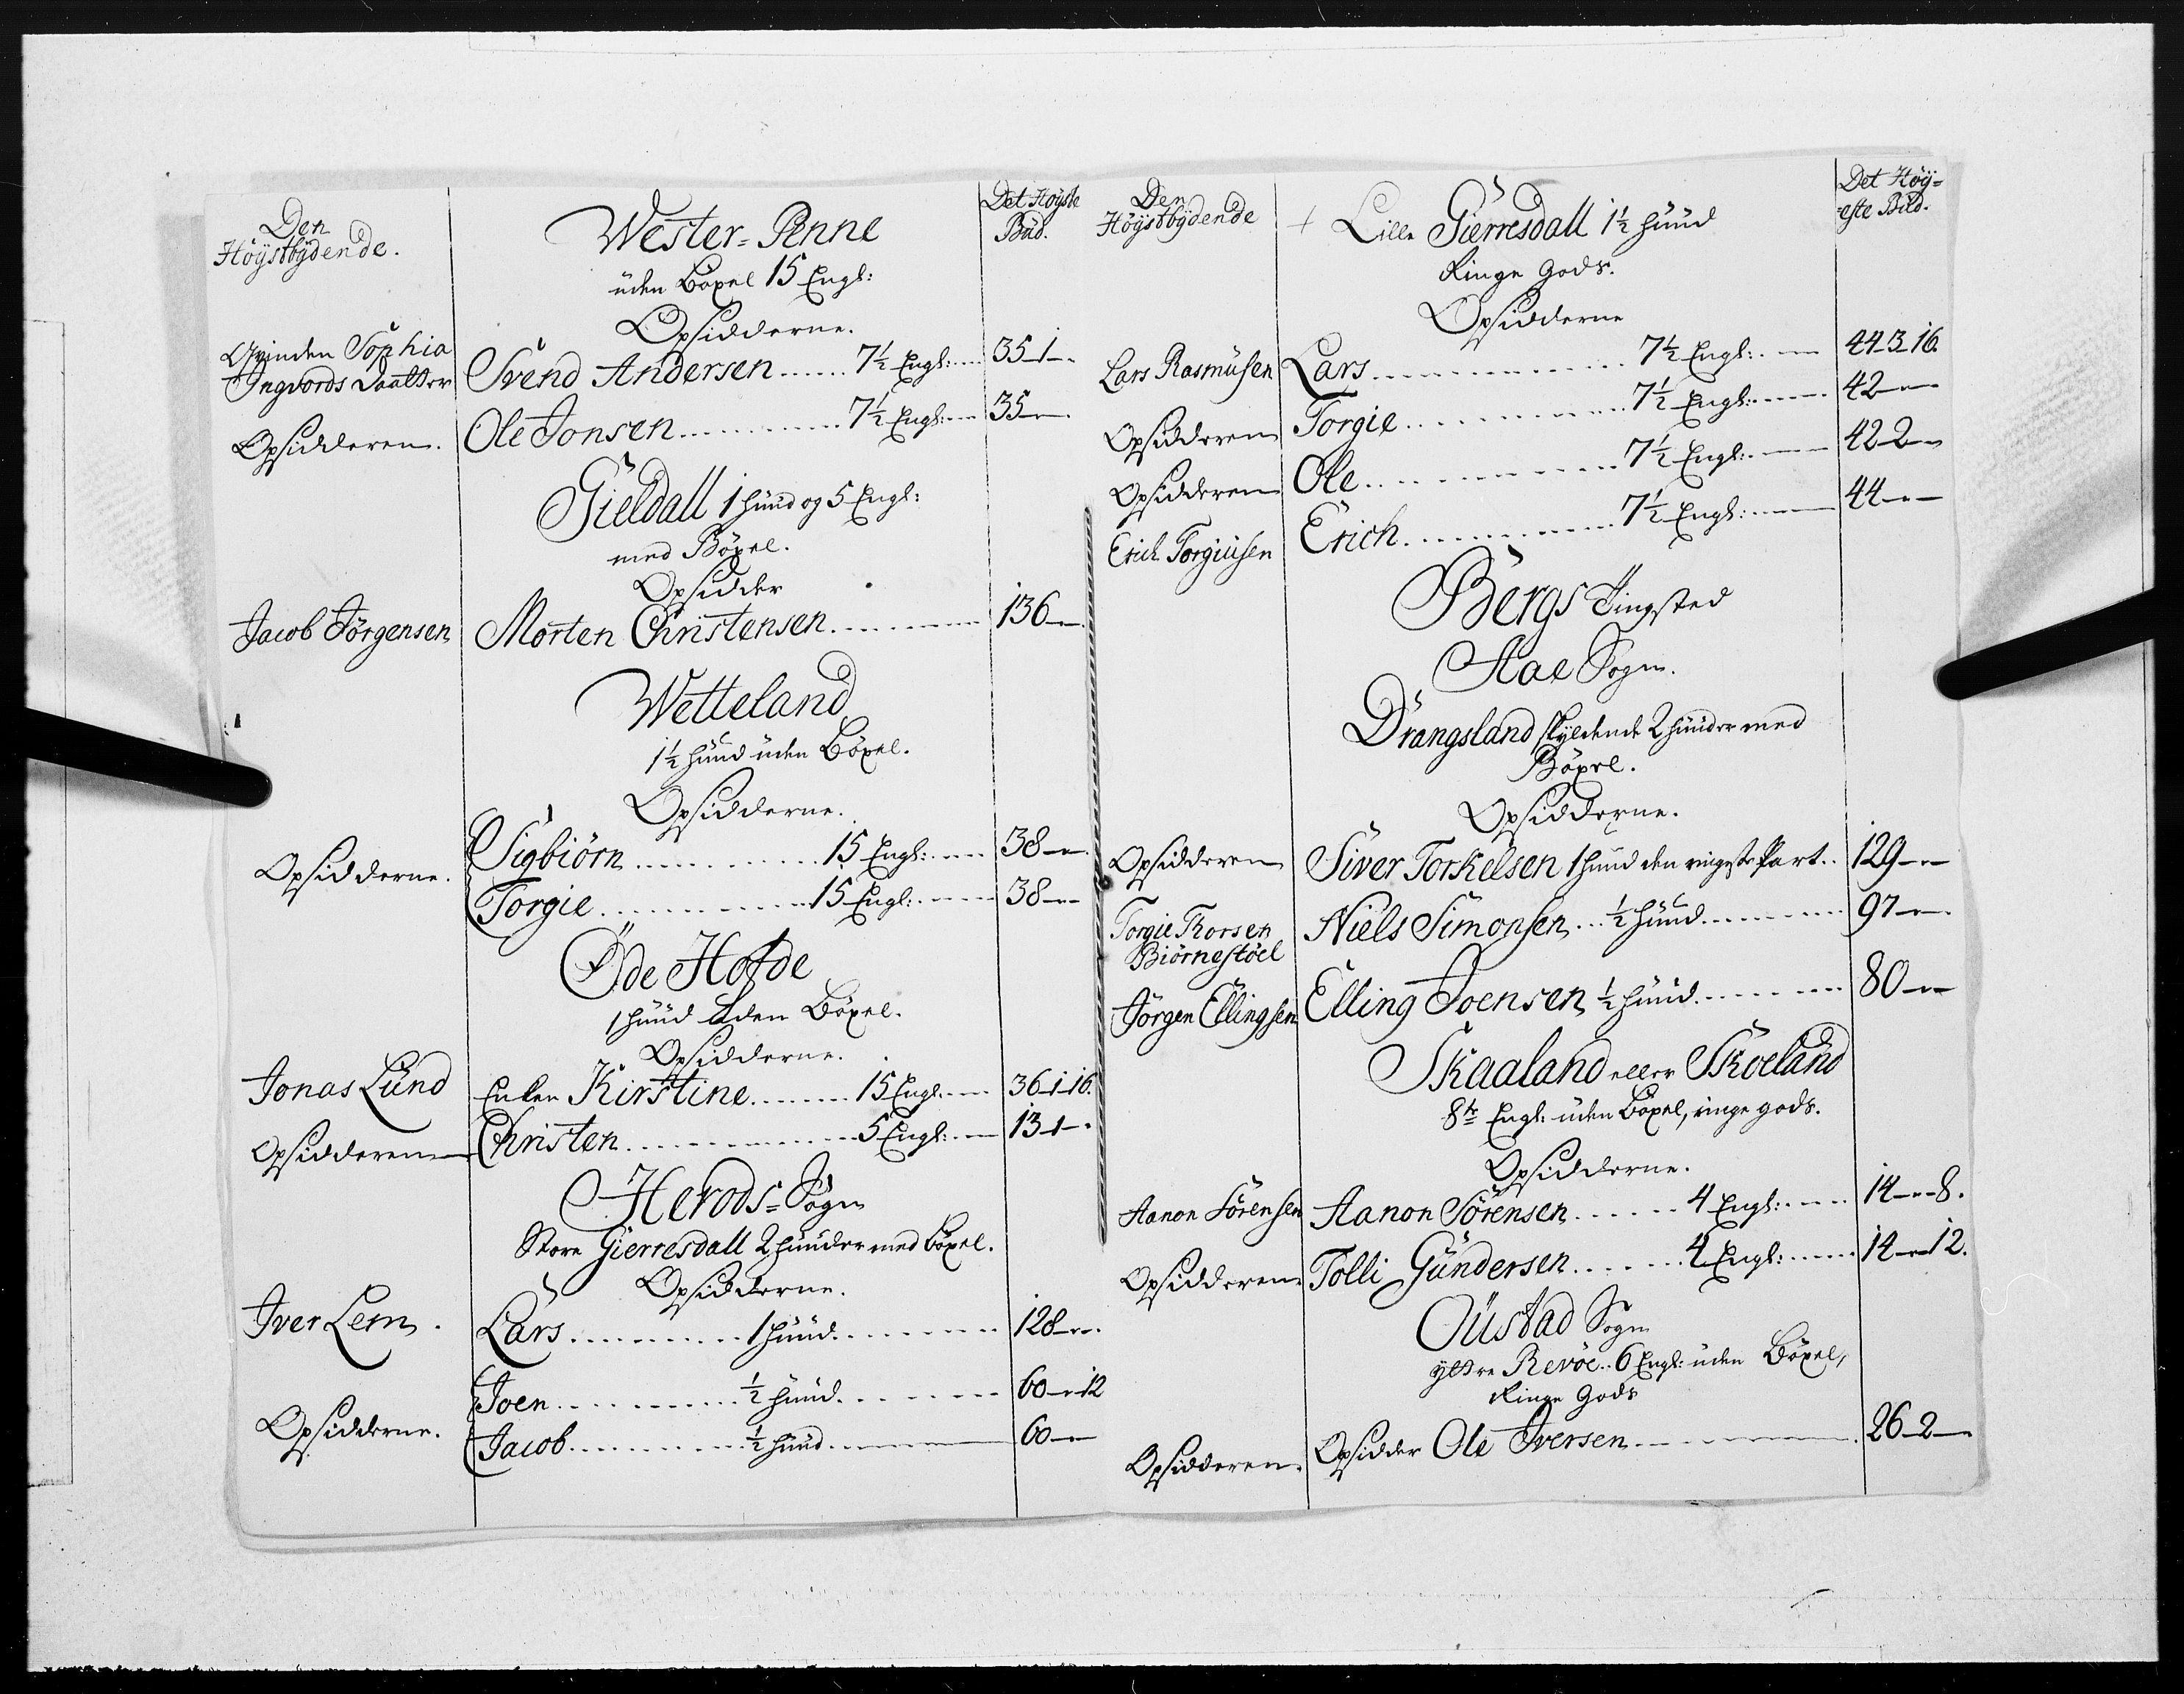 Den
Höystbydende.
Wester-Penne
Det Høyste
Büd.
üden Böxel 15 Engl:
Opsidderne.
Qvinden Sophia
Ingvords Daatter
Svend Andersen ...... 7½ Engl: 35-1-
Opsidderen. Ole Jonsen ............ 7½ Engl: 35--
Gieldall 1 hüüd og 5 Engl:
med Böxel.
Opsidder
Jacob Jörgensen Morten Christensen .......... 136--
Wetteland
1½ hüüd üden Böxel.
Opsidderne.
Opsidderne. Sigbiörn ............ 15 Engl: 38--
Torgie ............ 15 Engl: 38--
Öde Hofde
1 hüüd Uden Böxel.
Opsidderne.
Jonas Lünd Enken Kirstine ....... 15 Engl: 36-1-16.
Opsidderen Christen ............ 5 Engl: 13-1-
Herods-Sogn
Store Gierresdall 2 hüüder med Böxel.
Opsidderne.
Iver Lem. Lars .......... 1 hüüd ........ 128--
Joen .......... ½ hüüd ....... 60--12
Opsidderne. Jacob .......... ½ hüüd 60--
Den
Höystbydende
+ Lille Gierresdall 1½ hüüd
Det Höy=
=este Büd.
Ringe Gods.
Opsidderne
Lars Rasmüsen Lars .............. 7½ Engl: 44-3-16.
Opsidderen Torgie ............ 7½ Engl: 42--
Opsidderen Ole ............ 7½ Engl: 42-2-
Erich Torgiüsen Erich ............ 7½ Engl: 44--
Bergs Tingsted
Aae Sogn.
Drangsland skyldende 2 hüüder med
Böxel.
Opsidderne.
Opsidderen Siver Torkelsen 1 hüüd den ringeste Part.. 129--
Torgie Thorsen
Biörnestöel
Niels Simonsen ... ½ hüüd ........ 97--
Jörgen Ellingsen Elling Joensen ½ hüüd ........ 80--
Skaaland eller Skoeland
8te Engl: üden Böxel, ringe gods.
Opsidderne.
Aanon Sörensen Aanon Sörensen ...... 4 Engl: 14--8.
Opsidderen Tolli Gündersen ...... 4 Engl: 14--12.
Oüstad Sogn
Yttre Revöe.. 6 Engl: üden Böxel,
Ringe Gods
Opsidderen. Opsidder Ole Iversen ........ 26-2-